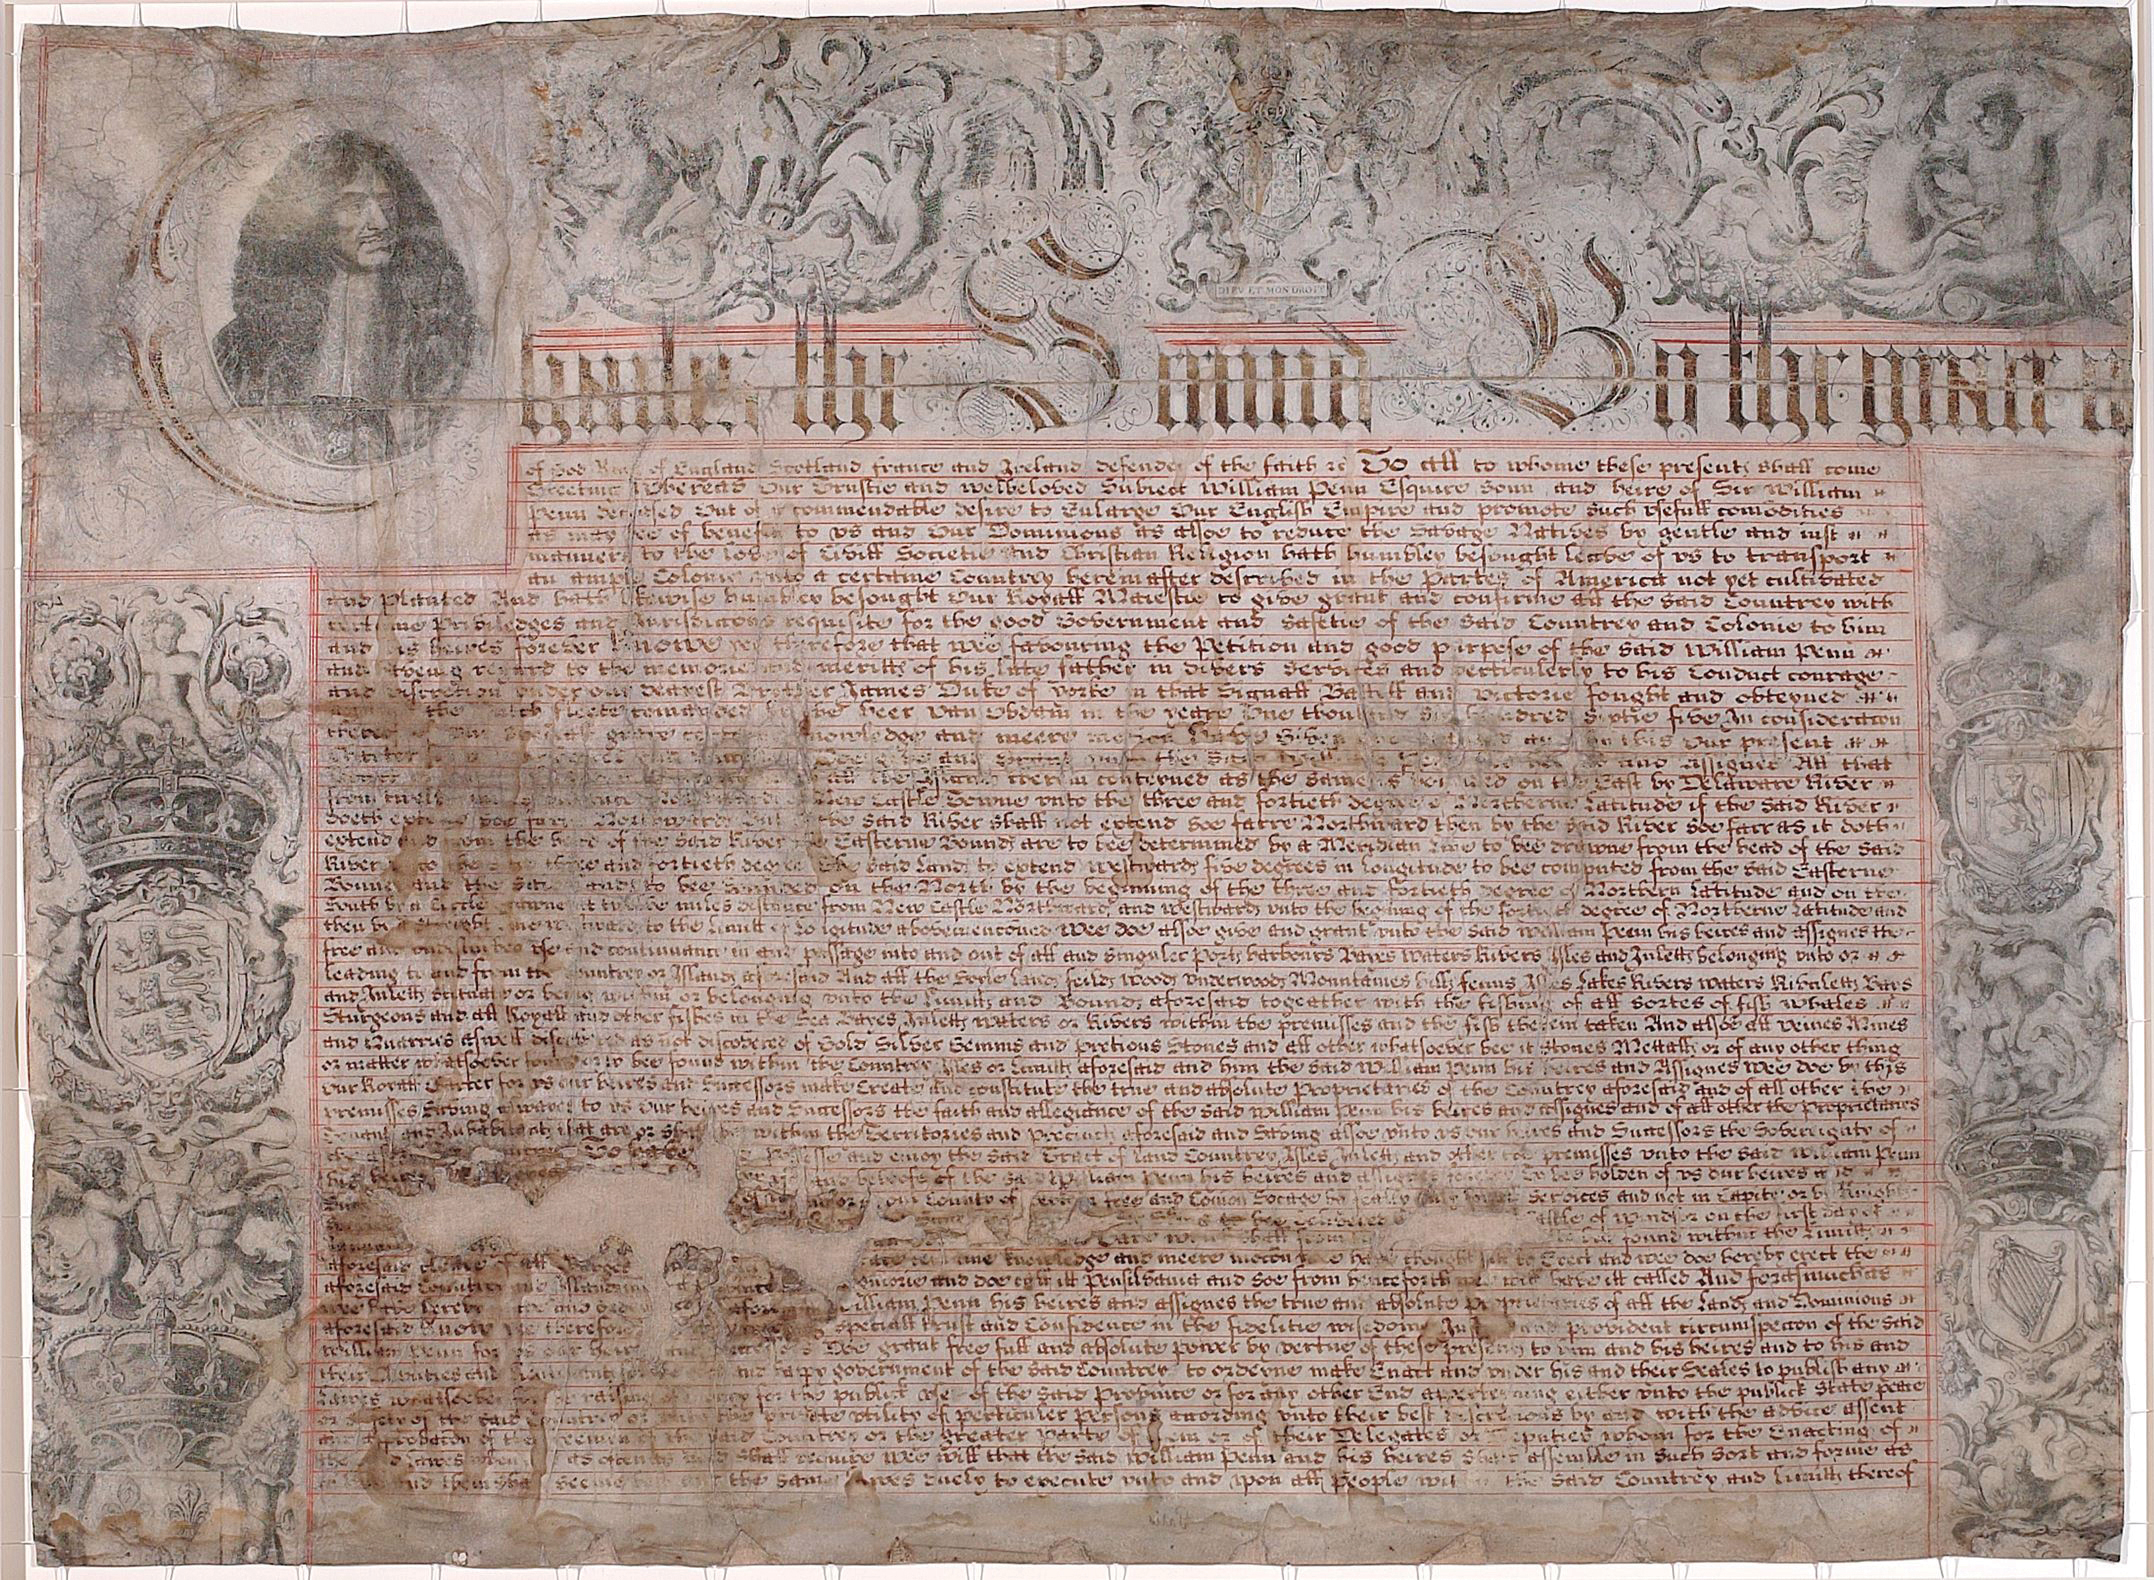 DIEV ET MON DROIT
harles the Second By the grace
of God King of England Scotland france and Ireland defender of the faith &c To all to whome these presents shall come
Greeting Whereas Our Trustie and welbeloved Subiect William Penn Esquire sonn and heire of Sir William
Penn deceased Out of a commendable desire to Enlarge Our English Empire and promote such vsefull comodities
as may bee of benefitt to vs and Our Dominions as alsoe to reduce the Savage Natives by gentle and iust
manners to the love of Civill Societie and Christian Religion hath humbley besought leave of vs to transport
an ample Colonie vnto a certaine Countrey hereinafter described in the Partes of America not yet cultivated
and Planted And hath likewise humbley besought Our Royall Maiestie to give grant and confirme all the said Countrey with
certaine Priviledges and Jurisdiccons requisite for the good Government and Safetie of the said Countrey and Colonie to him
and his heires forever Knowe yee therefore that wee favouring the Petition and good purpose of the said William Penn
and haveing regard to the memorie and meritts of his late father in divers services and perticulerly to his Conduct courage
and discretion vnder our dearest Brother James Duke of yorke in that Signall Battell and victorie fought and obteyned
the Dutch fleete comanded by the heer van Obdam in the yeare One thousand Six hundred Sixtie five In consideration
thereof Our speciall grace knowledge and meere this Our present
Doe give and Grant vnto the said assignes All that
all the Islands therein conteined as the same is bounded on the East by Delaware River
from twelve New Castle Towne vnto the three and fortieth degree of Northerne Latitude if the said River
doeth extend soe farre Northwards But the said River shall not extend soe farre Northward then by the said River soe farr as it doth
extend and from the head of the said River the Easterne Bounds are to bee determined by a Meridian Line to bee drawne from the head of the said
River vnto the three and fortieth degree The said Lands to extend westwards five degrees in longitude to bee computed from the said Easterne
Bounds and the said lands to bee bounded on the North by the beginning of the three and fortieth degree of Northern Latitude and on the
South by a Circle drawne at twelve miles distance from New Castle Northward and westwards vnto the beginning of the fortieth degree of Northerne Latitude and
then by a streight line westward to the Limitt of Longitude abovemenconed Wee doe alsoe give and grant vnto the said William Penn his heires and assignes the
free and vndisturbed vse and continuance in and passage into and out of all and singuler Ports harbours Bayes waters Rivers Isles and Inletts belonging vnto or
leading to and from the Countrey or Islands aforesaid And all the Soyle lands feilds woods vnderwoods Mountaines hills fenns Isles Lakes Rivers waters Rivuletts Bays
and Inletts scituate or being within or belonging vnto the Limitts and Bounds aforesaid togeather with the fishing of all sortes of fish whales
Sturgeons and all Royall and other fishes in the Sea Bayes Inletts waters or Rivers within the premisses and the fish therein taken And alsoe all veines Mines
and Quarries aswell discovered as not discovered of Gold Silver Gemms and pretious Stones and all other whatsoever bee it Stones Mettalls or of any other thing
or matter whatsoever found or to bee found within the Countrey Isles or Limitts aforesaid and him the said William Penn his heires and Assignes Wee doe by this
Our Royall Charter for vs our heires and Successors make Create and constitute the true and absolute Proprietaries of the Countrey aforesaid and of all other the
premisses Saving alwayes to vs Our heires and Successors the faith and allegiance of the said William Penn his heires and assignes and of all other the Proprietaries
Tenants and Inhabitants that are or shall bee within the Territories and Precincts aforesaid and Saving alsoe vnto vs our heires and Successors the Sovereignty of
the To have possesse and enioy the said Tract of Land Countrey Isles Inletts and other the premisses vnto the said William Penn
his heires and behoofe of the said William Penn his heires and assignes To bee holden of vs our heires and
Our County of free and Comon Socage by fealty only Services and not in Capite or by Knights
bee delivered Castle of Windsor on the first day of
found within the Limitts
aforesaid cleare of all Charges certaine knowledge and meere mocon have thought fitt to Erect and wee doe hereby erect the
aforesaid Countrey and Islands and doe call itt Pensilvania and soe from henceforth wee will have itt called And forasmuch as
wee have hereby William Penn his heires and assignes the true and absolute Proprietaries of all the Lands and Dominions
aforesaid Know yee therefore speciall trust and Confidence in the fidelitie wisedome and provident circumspeccon of the said
William Penn for vs our heires and Successors Doe grant free full and absolute power by vertue of these presents to him and his heires and to his and
their Deputies and Lieutenants for the and happy government of the said Countrey to ordeyne make Enact and vnder his and their Seales to publish any
Lawes whatsoever for the raising of money for the publick vse of the said Province or for any other End apperteyning either vnto the publick State peace
or safety of the said Countrey or vnto the private vtility of perticuler persons according vnto their best discretions by and with the advice assent
and approbacon of the freemen of the said Countrey or the greater Party of them or of their Delegates or Deputies whom for the Enacting of
the said Lawes when and as often as need shall require Wee will that the said William Penn and his heires shall assemble in such sort and forme as
to him and them shall seeme best and the same Lawes duely to execute vnto and vpon all People within the said Countrey and Limitts thereof